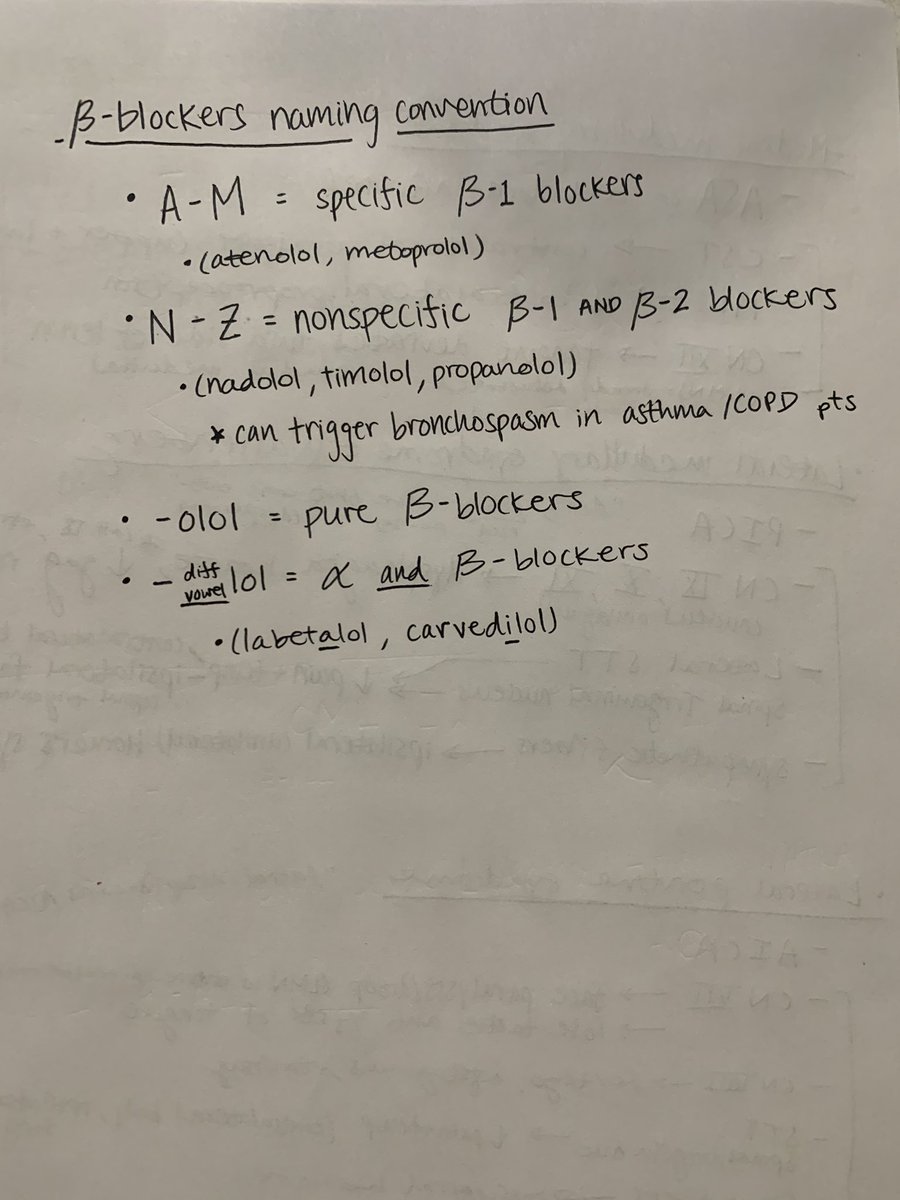 β-blockers naming convention
• A-M = specific β-1 blockers
• (atenolol, metoprolol)
• N - Z = nonspecific β-1 AND β-2 blockers
• (nadolol, timolol, propanolol)
* can trigger bronchospasm in asthma /COPD pts
• -olol = pure β-blockers
• - diff vowel lol = α and β-blockers
• (labetalol, carvedilol)